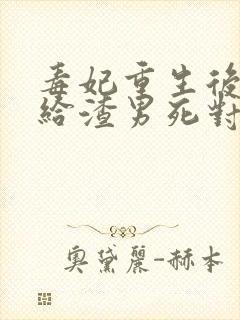 毒妃重生後
給渣男死對
奧黛麗-赫本